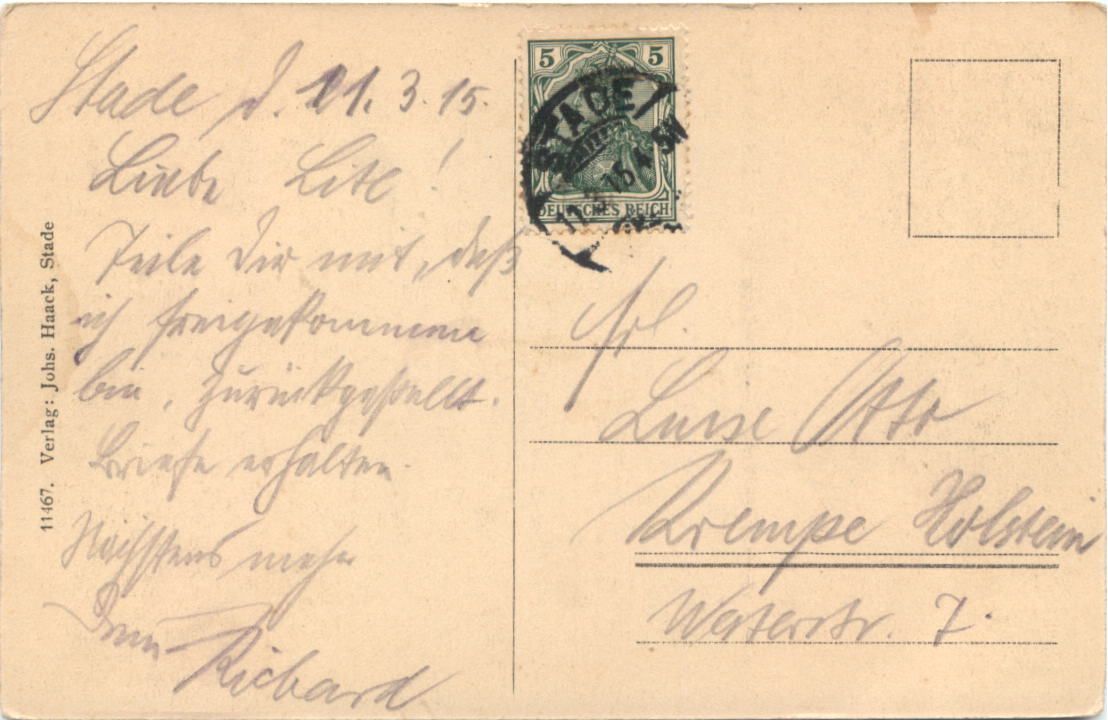 Stade d. 11. 3. 15.
Liebe Lise!
Teile Dir mit, daß
ich freigekommen
bin, zurückgestellt.
Briefe erhalten.
Nächstens mehr
Dein Richard
11467. Verlag: Johs. Haack, Stade
5 5
STADE
11.3.15
DEUTSCHES REICH
Frl.
Luise Otto
Krempe Holstein
7.